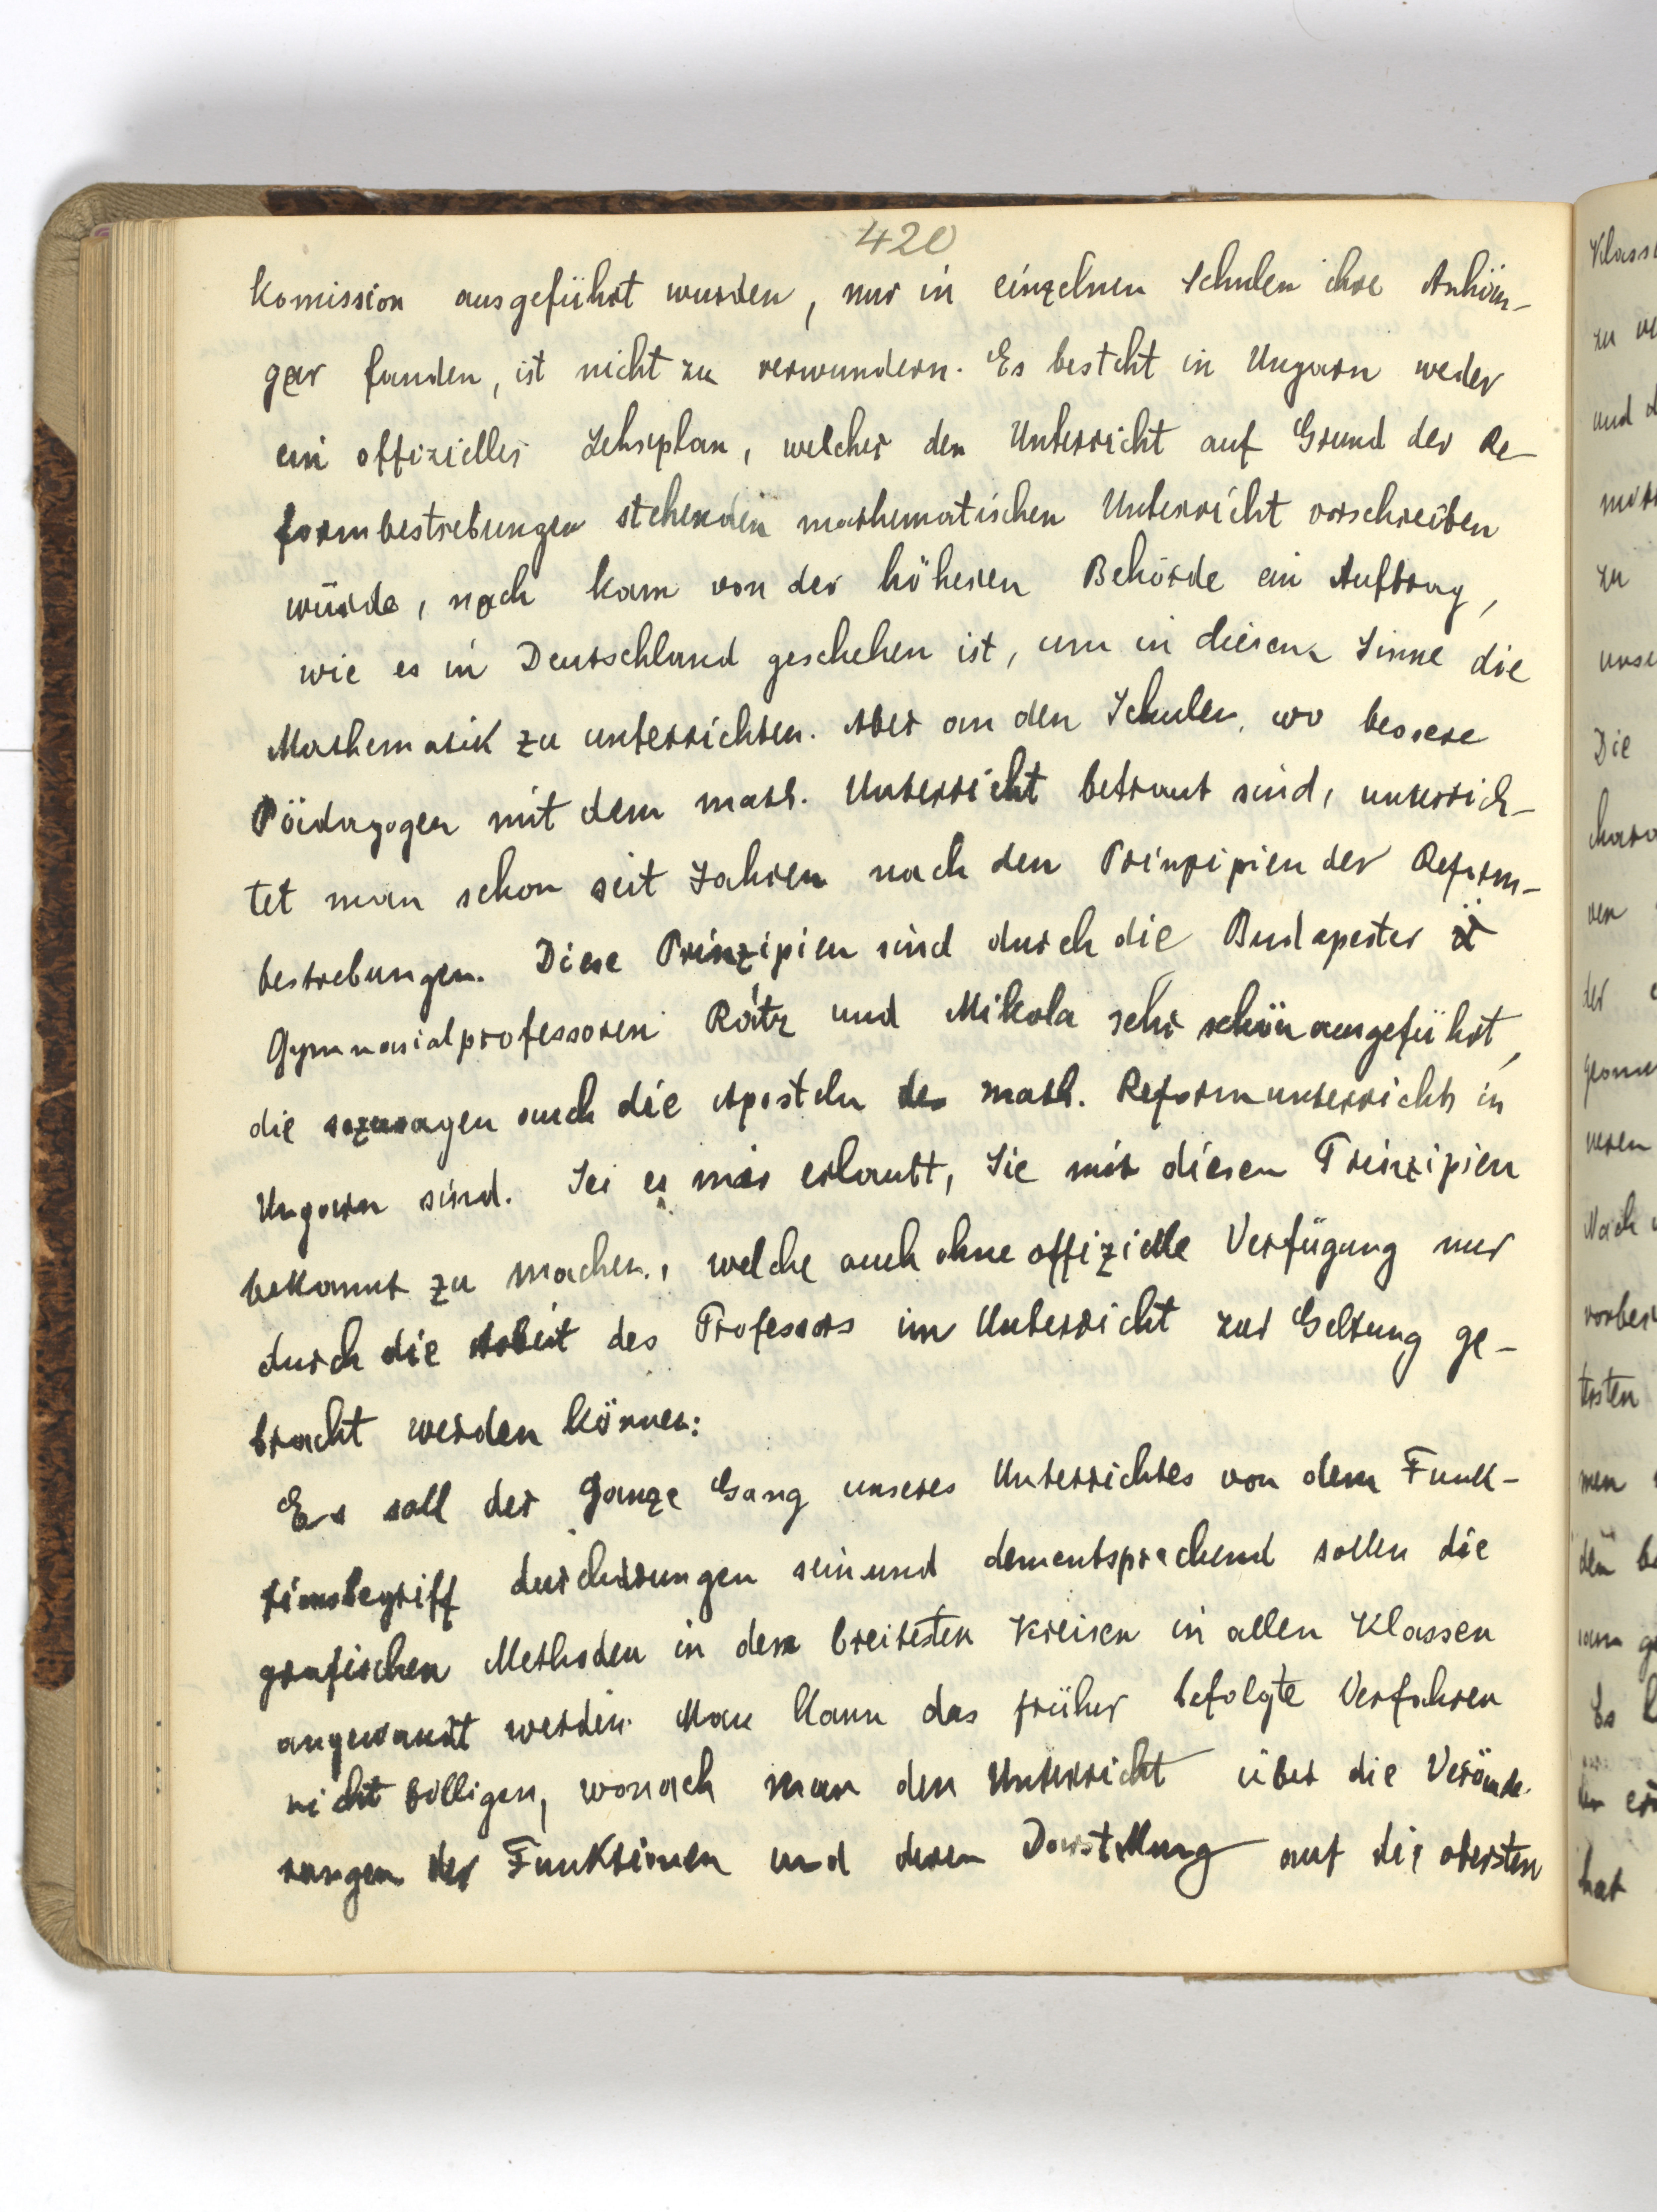 420
Komission ausgeführt wurden, nur in einzelnen Schulen ihre Anhän-
ger fanden, ist nicht zu verwundern. Es besteht in Ungarn weder
ein offizieller Lehrplan, welcher den Unterricht auf Grund der Re-
formbestrebungen stehenden mathematischen Unterricht vorschreiben
würde, noch kam von der höheren Behörde ein Auftrag,
wie es in Deutschland geschehen ist, um in diesem Sinne die
Mathematik zu unterrichten. Aber an den Schulen, wo bessere
Pädagogen mit dem math. Unterricht betraut sind, unterrich-
tet man schon seit Jahren nach den Prinzipien der Reform-
bestrebungen. Diese Prinzipien sind durch die Budapester
Gymnasialprofessoren Rátz und Mikola sehr schön ausgeführt,
die sozusagen auch die Aposteln des math. Reformunterrichts in
Ungarn sind. Sei es mir erlaubt, Sie mit diesen Prinzipien
bekannt zu machen, welche auch ohne offizielle Verfügung nur
durch die Arbeit des Professors im Unterricht zur Geltung ge-
bracht werden können:
Es soll der ganze Gang unseres Unterrichtes von dem Funk-
tionsbegriff durchdrungen sein und dementsprechend sollen die
grafischen Methoden in den breitesten Kreisen in allen Klassen
angewandt werden. Man kann das früher befolgte Verfahren
nicht billigen, wonach man den Unterricht über die Verände-
rungen der Funktionen und deren Darstellung auf die obersten
Klass
zu
und d
zu
Die
der
Nach
vorber
ersten
men
Es
hat